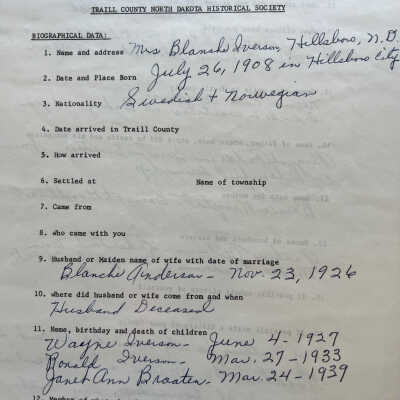 TRAILL COUNTY NORTH DAKOTA HISTORICAL SOCIETY
BIOGRAPHICAL DATA:
1. Name and address Mrs Blanche Iverson, Hillsboro, N.D.
2. Date and Place Born July 26, 1908 in Hillsboro City
3. Nationality Swedish + Norwegian
4. Date arrived in Traill County
5. How arrived
6. Settled at Name of township
7. Came from
8. who came with you
9. Husband or Maiden name of wife with date of marriage
Blanche Anderson - Nov. 23, 1926
10. where did husband or wife come from and when
Husband Deceased
11. Name, birthday and death of children
Wayne Iverson - June 4 - 1927
Ronald Iverson - Mar. 27 - 1933
Janet Ann Braaten - Mar. 24 - 1939
12.